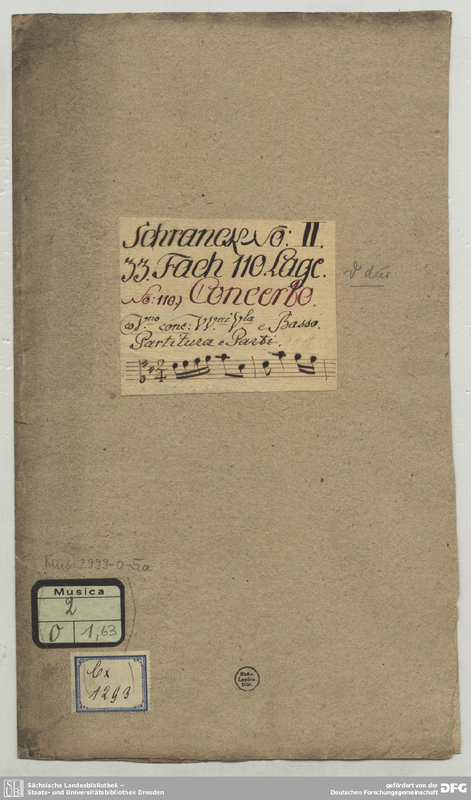 Schranck No: II.
33. Fach 110. Lage.
No: 110,) Concerto.
co V.no conc: VV.ni V.la e Basso.
Partitura e Parti.
2
4
D dur
Mus. 2999-O-5a
Musica
2
O 1,63
Cx
1293
Sächs.
Landes
Bibl.
Sächsische Landesbibliothek –
Staats- und Universitätsbibliothek Dresden
gefördert von der
Deutschen Forschungsgemeinschaft DFG